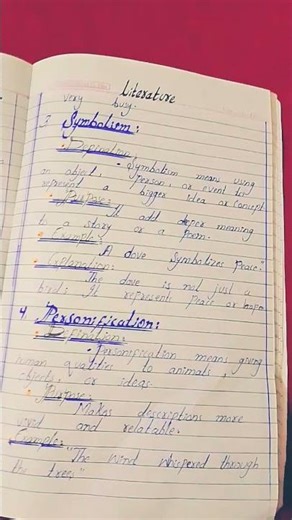 Literature
very busy.
3. Symbolism:
• Defination:
• Symbolism means using
an object, person, or event to
represent a bigger idea or concept
• Purpose:
It add deeper meaning
to a story or a poem.
• Example:
"A dove symbolizes peace".
• Explanation:
The dove is not just a
bird; it represents peace or hope
4. Personification:
• Defination:
• Personification means giving
human qualities to animals,
objects, or ideas.
• Purpose:
Makes descriptions more
vivid and relatable.
Example:
"The wind whispered through
the trees"